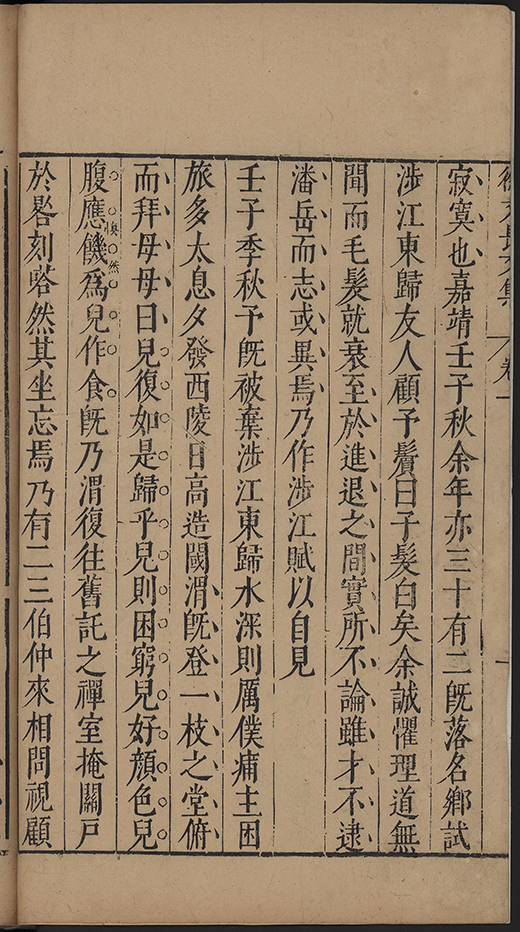 徐文長文集 卷一 一
寂寞也嘉靖壬子秋余年亦三十有二旣落名鄉試
涉江東歸友人顧予鬢曰子髮白矣余誠懼理道無
聞而毛髮就衰至於進退之間實所不論雖才不逮
潘岳而志或異焉乃作涉江賦以自見
壬子季秋予旣被棄涉江東歸水深則厲僕痡主困
旅多太息夕發西陵日高造閾渭旣登一枝之堂俯
而拜母母曰兒復如是歸乎兒則困窮兒好顏色兒
腹應饑爲兒作食旣乃渭復往舊託之禪室掩關戶
惧然
於晷刻嗒然其坐忘焉乃有二三伯仲來相問視顧